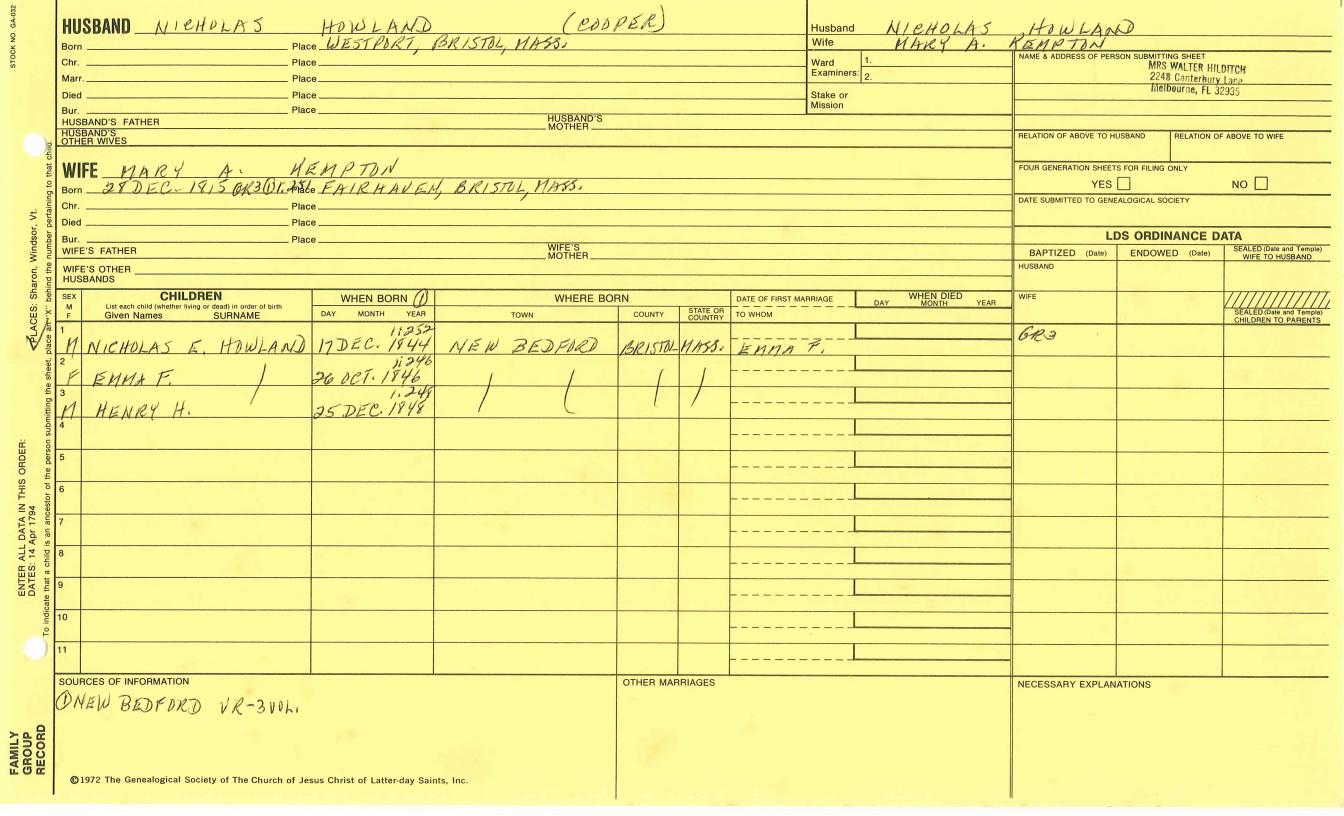 STOCK NO. GA-032
HUSBAND NICHOLAS HOWLAND (COOPER)
Born Place WESTPORT, BRISTOL, MASS.
Chr. Place
Marr. Place
Died Place
Bur. Place
HUSBAND'S FATHER HUSBAND'S MOTHER
HUSBAND'S OTHER WIVES
Husband NICHOLAS HOWLAND
Wife MARY A. KEMPTON
Ward Examiners: 1.
2.
Stake or Mission
NAME & ADDRESS OF PERSON SUBMITTING SHEET
MRS WALTER HILDITCH
2248 Canterbury Lane
Melbourne, FL 32935
RELATION OF ABOVE TO HUSBAND RELATION OF ABOVE TO WIFE
FOUR GENERATION SHEETS FOR FILING ONLY
YES NO
DATE SUBMITTED TO GENEALOGICAL SOCIETY
WIFE MARY A. KEMPTON
Born 28 DEC. 1815 GR3 Place FAIRHAVEN, BRISTOL, MASS.
Chr. Place
Died Place
Bur. Place
WIFE'S FATHER WIFE'S MOTHER
WIFE'S OTHER HUSBANDS
LDS ORDINANCE DATA
BAPTIZED (Date) ENDOWED (Date) SEALED (Date and Temple) WIFE TO HUSBAND
HUSBAND
WIFE
SEALED (Date and Temple) CHILDREN TO PARENTS
SEX M F CHILDREN WHEN BORN ① WHERE BORN DATE OF FIRST MARRIAGE WHEN DIED
List each child (whether living or dead) in order of birth
Given Names SURNAME DAY MONTH YEAR TOWN COUNTY STATE OR COUNTRY TO WHOM DAY MONTH YEAR
1 1:252
M NICHOLAS E. HOWLAND 17 DEC. 1844 NEW BEDFORD BRISTOL MASS. EMMA F. GR3
2 1:246
F EMMA F. 26 OCT. 1846
3 1:248
M HENRY H. 25 DEC. 1848
4
5
6
7
8
9
10
11
SOURCES OF INFORMATION
① NEW BEDFORD VR-3VOL.
OTHER MARRIAGES
NECESSARY EXPLANATIONS
©1972 The Genealogical Society of The Church of Jesus Christ of Latter-day Saints, Inc.
FAMILY GROUP RECORD
ENTER ALL DATA IN THIS ORDER:
DATES: 14 Apr 1794
PLACES: Sharon, Windsor, Vt.
To indicate that a child is an ancestor of the person submitting the sheet, place an "X" behind the number pertaining to that child.